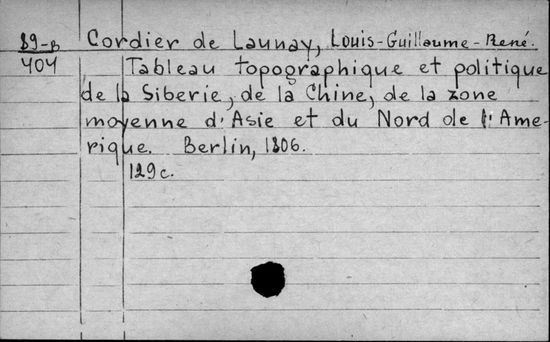 89-в Cordier de Launay, Louis-Guillaume-René.
404 Tableau topographique et politique
de la Siberie, de la Chine, de la zone
moyenne d'Asie et du Nord de l'Ame-
rique. Berlin, 1806.
129 c.